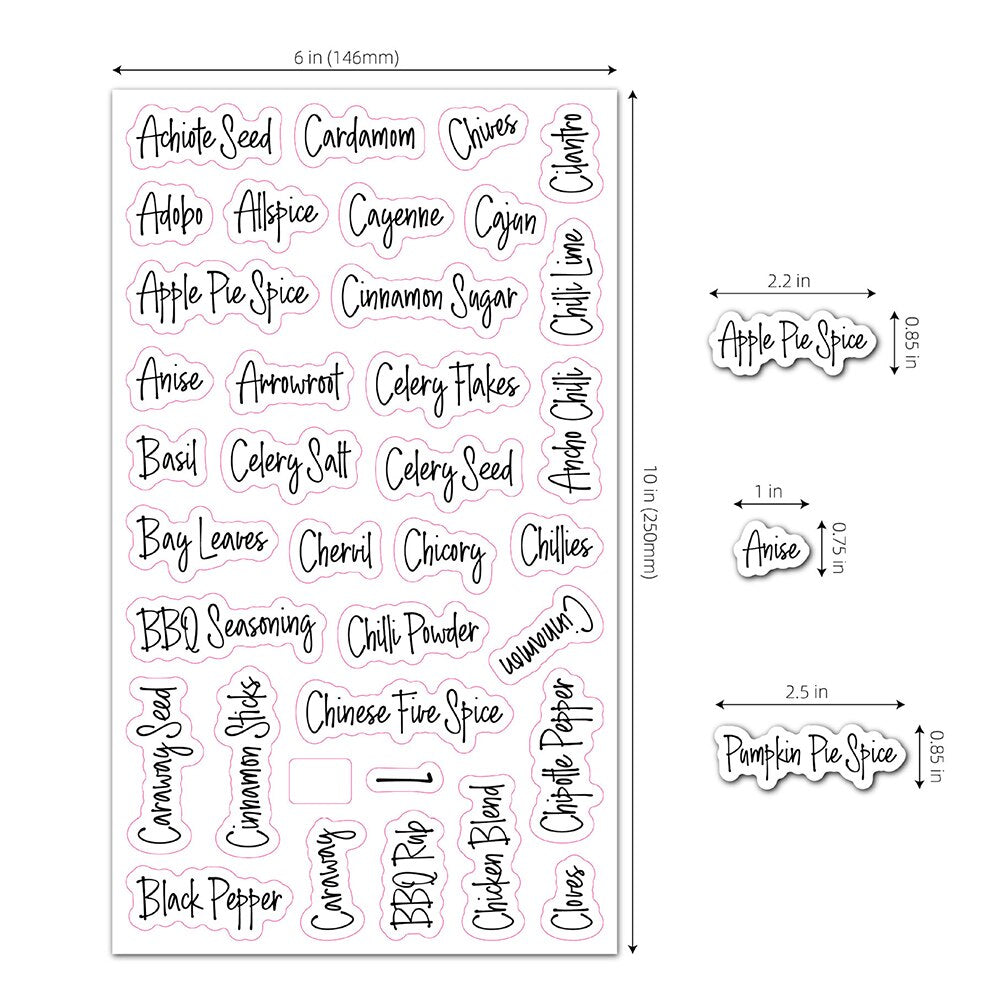 6 in (146mm)
Achiote Seed
Cardamom
Chives
Cilantro
Adobo
Allspice
Cayenne
Cajun
Chilli Lime
Apple Pie Spice
Cinnamon Sugar
Anise
Arrowroot
Celery Flakes
Ancho Chilli
Basil
Celery Salt
Celery Seed
Bay Leaves
Chervil
Chicory
Chillies
BBQ Seasoning
Chilli Powder
Cinnamon
Caraway Seed
Cinnamon Sticks
Chinese Five Spice
Chipotle Pepper
1
Black Pepper
Caraway
BBQ Rub
Chicken Blend
Cloves
10 in (250mm)
2.2 in
Apple Pie Spice
0.85 in
1 in
Anise
0.75 in
2.5 in
Pumpkin Pie Spice
0.85 in